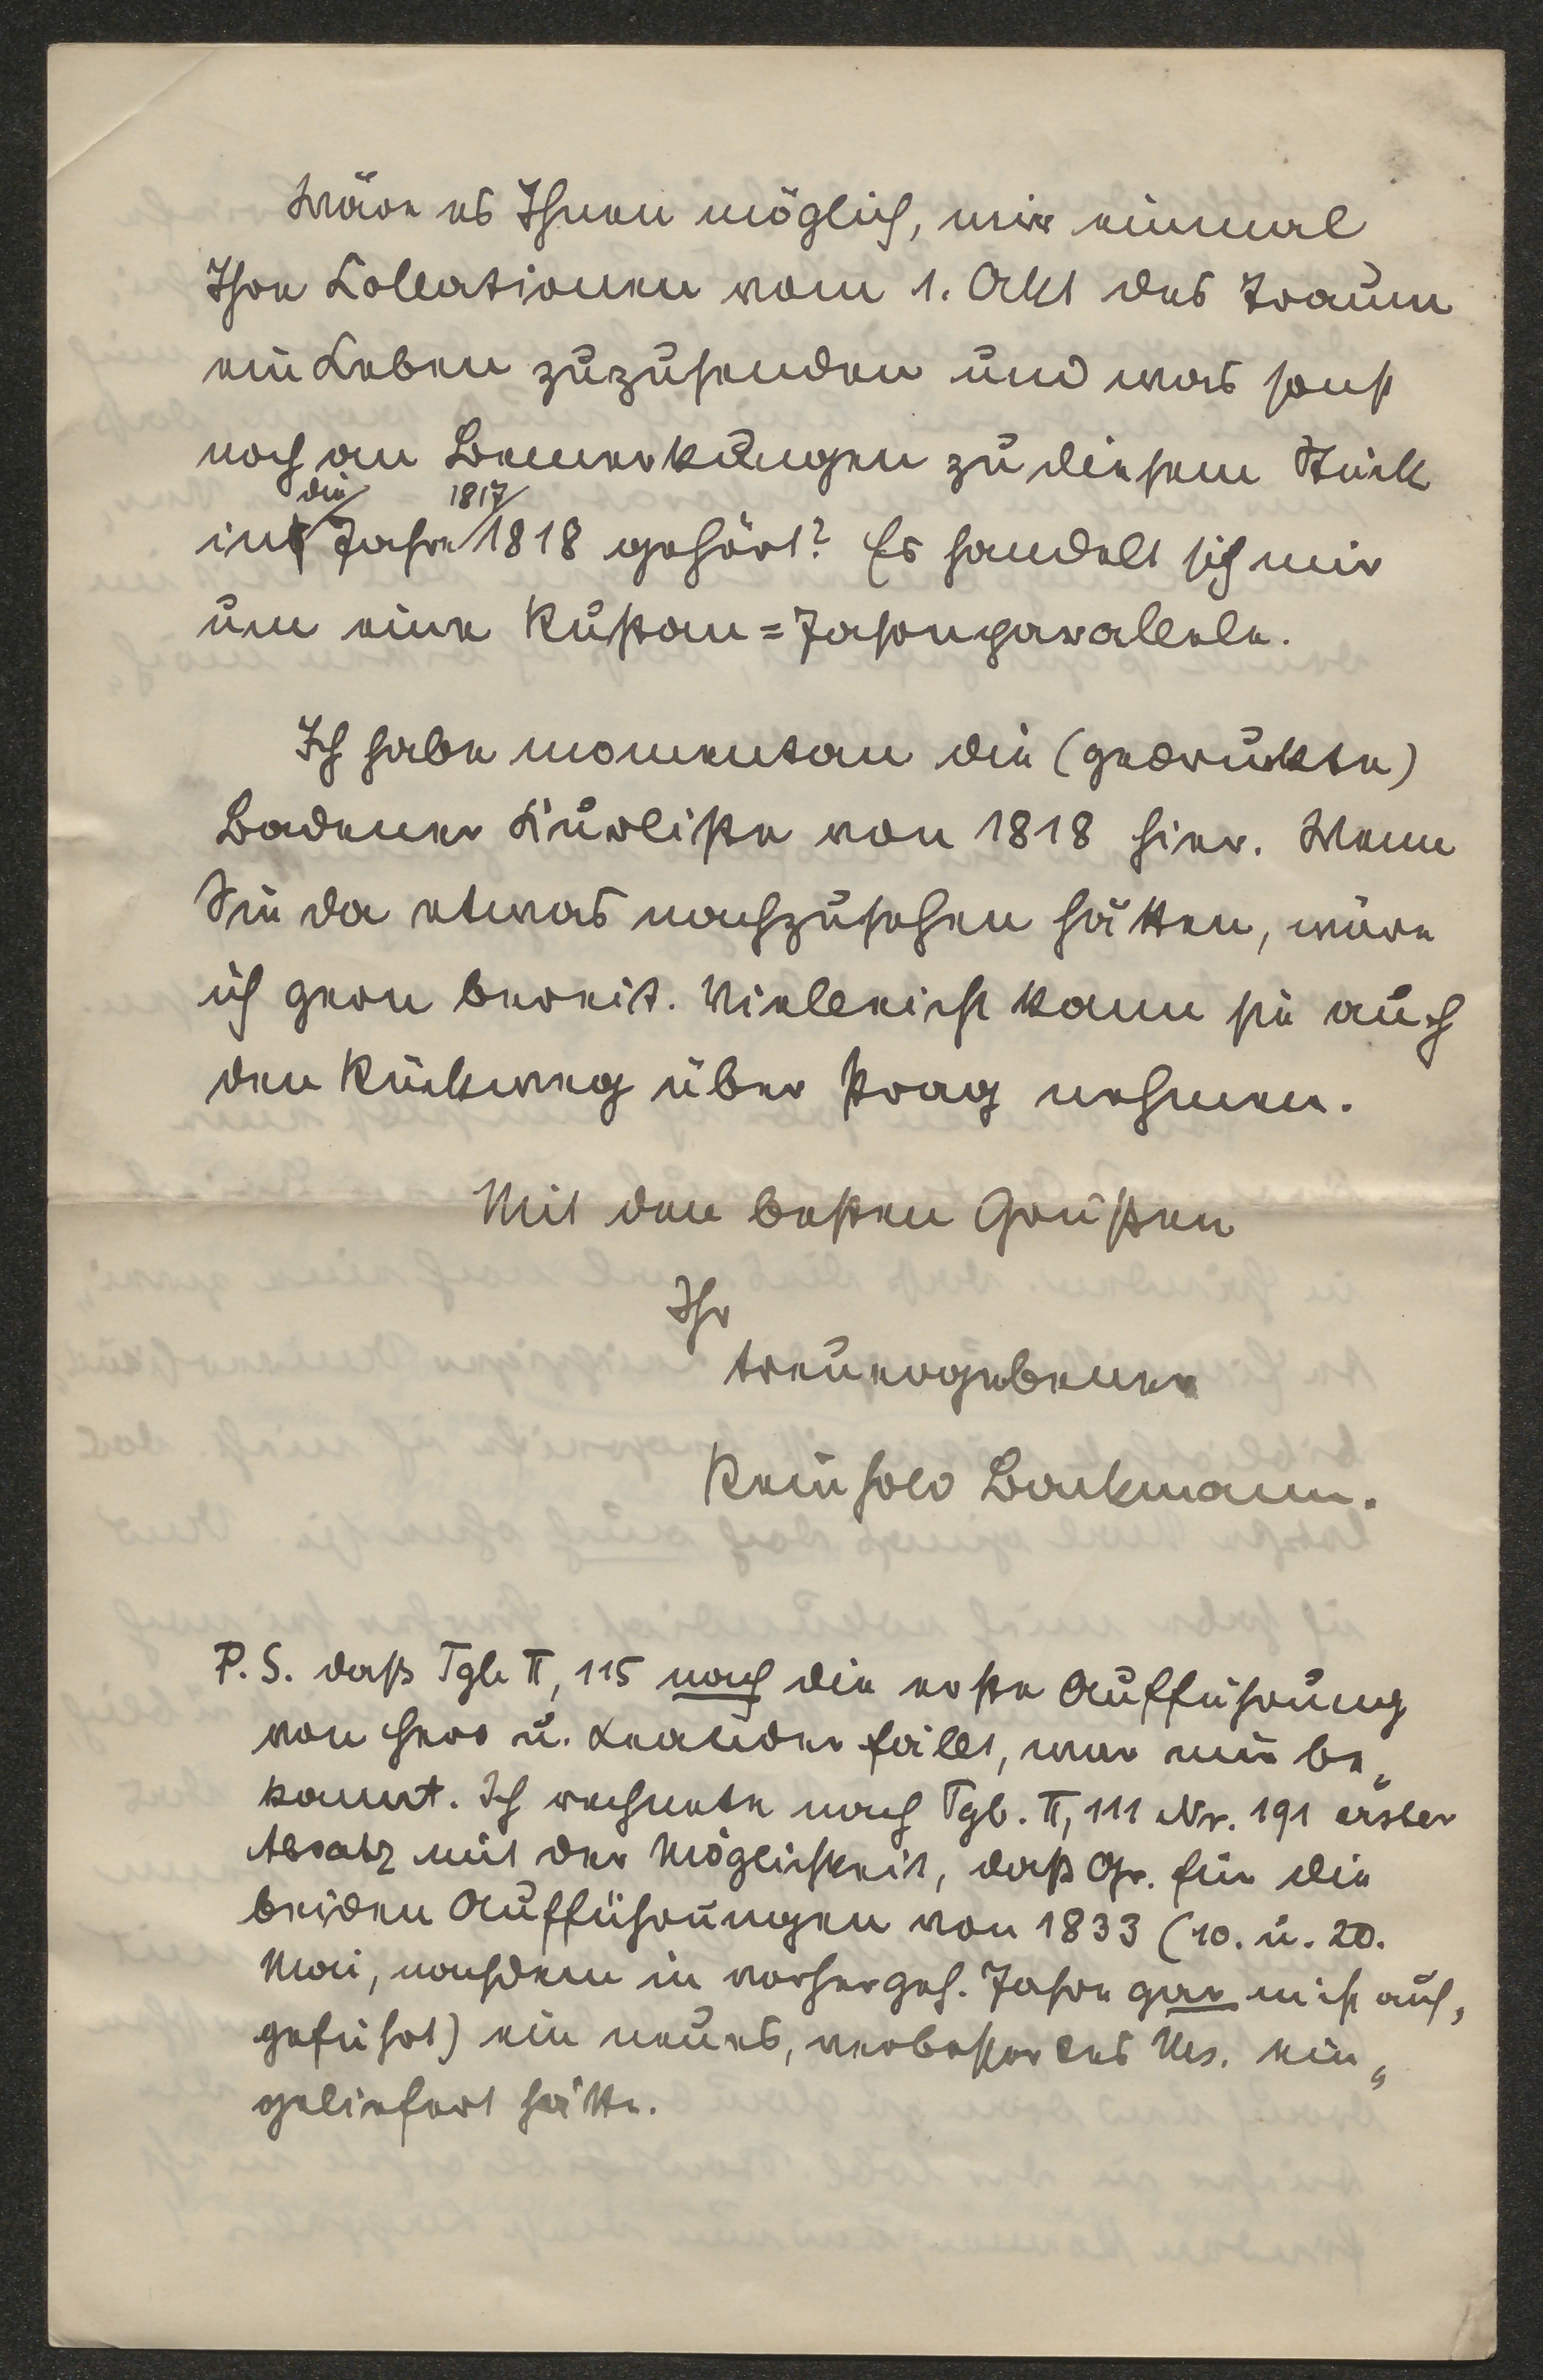 Wäre es Ihnen möglich, mir einmal
Ihre Kollationen vom 1. Akt des Traum
ein Leben zuzusenden und was sonst
noch an Bemerkungen zu diesem Stück
die 1817/
in Jahre 1818 gehört? Es handelt sich mir
um eine Rustan=Jasonparallele.
Ich habe momentan die (gedruckte)
Badener Kurliste von 1818 hier. Wenn
Sie da etwas nachzusehen hätten, wäre
ich gern bereit. Vielleicht kann sie auch
den Rückweg über Prag nehmen.
Mit den besten Grüßen
Ihr
treuergebener
Reinhold Backmann.
P. S. daß Tgb II, 115 nach die erste Aufführung
von Hero u. Leander fällt, war mir be„
kannt. Ich rechnete nach Tgb. II, 111 Nr. 191 erster
Absatz mit der Möglichkeit, daß Gr. für die
beiden Aufführungen von 1833 (10. u. 20.
Mai, nachdem in vorhergeh. Jahre gar nicht auf„
geführt) ein neues, verbessertes Ms. ein„
geliefert hätte.